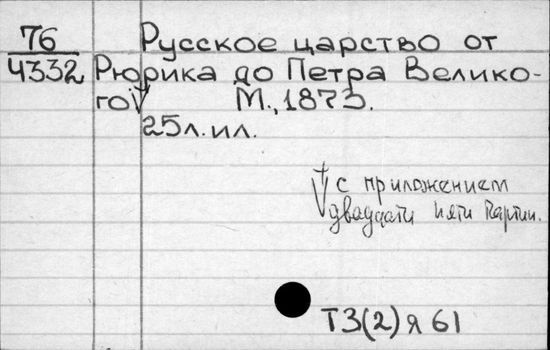 76
4332
Русское царство от
Рюрика до Петра Велико-
го М., 1873.
25 л. ил.
с приложением
двадцати пяти картин.
ТЗ(2)я 61